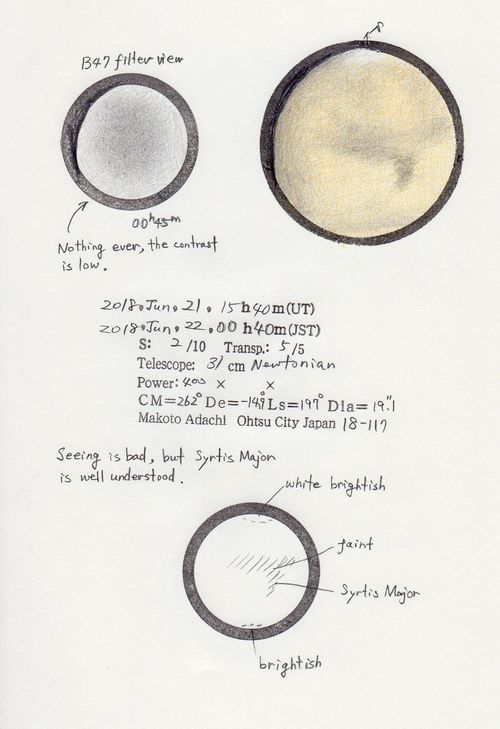 B47 filter view
00h45m
Nothing ever, the contrast
is low.
2018, Jun, 21, 15h40m(UT)
2018, Jun, 22, 00h40m(JST)
S: 2/10 Transp.: 5/5
Telescope: 31 cm Newtonian
Power: 400 × ×
CM=262° De=-14.9° Ls=197° Dia=19".1
Makoto Adachi Ohtsu City Japan 18-117
Seeing is bad, but Syrtis Major
is well understood.
white brightish
faint
Syrtis Major
brightish